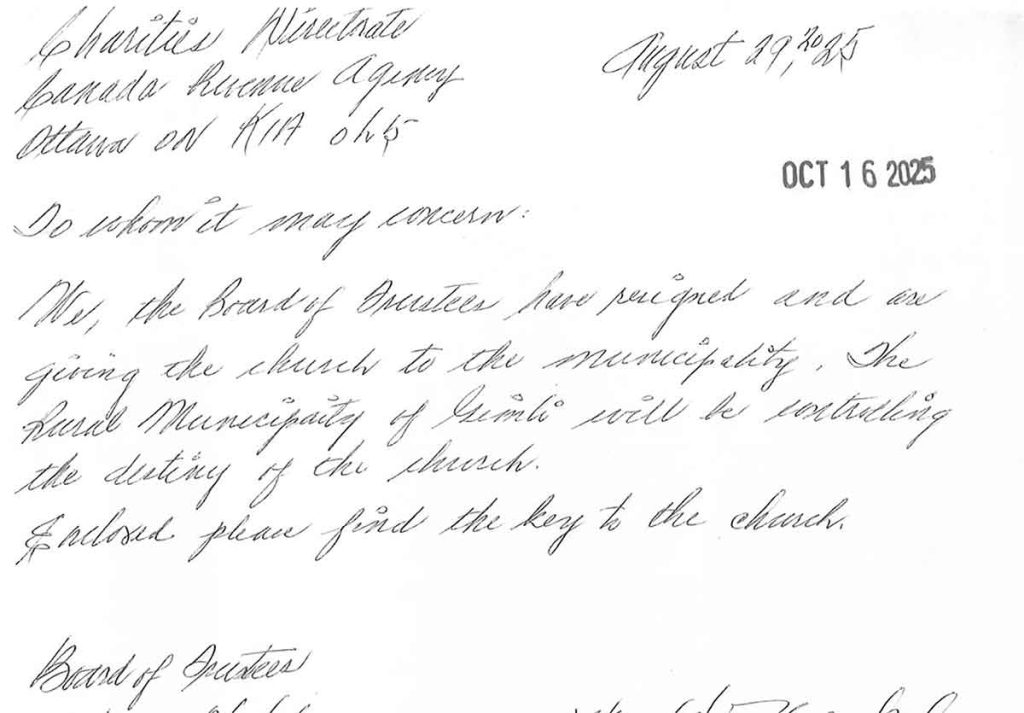 Charities Directorate
August 29, 2025
Canada Revenue Agency
Ottawa ON K1A 0L5
OCT 16 2025
To whom it may concern:
We, the Board of Trustees have resigned and are
giving the church to the municipality. The
Rural Municipaity of Gimli will be controlling
the destiny of the church.
Enclosed please find the key to the church.
Board of Trustees